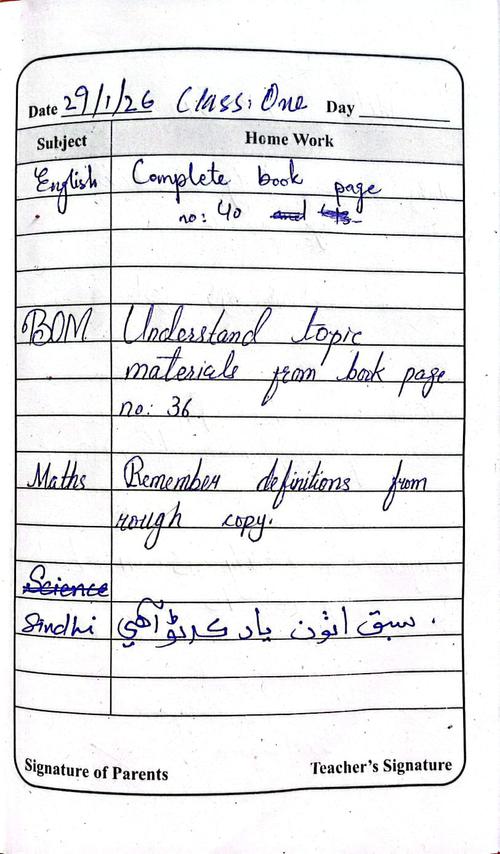 Date 29/1/26 Class: One Day
Subject Home Work
English Complete book page
no: 40 and
BOM Understand topic
materials from book page
no: 36
Maths Remember definitions from
rough copy.
Science
Sindhi سبق اٺون ياد ڪرڻو آهي.
Signature of Parents Teacher's Signature